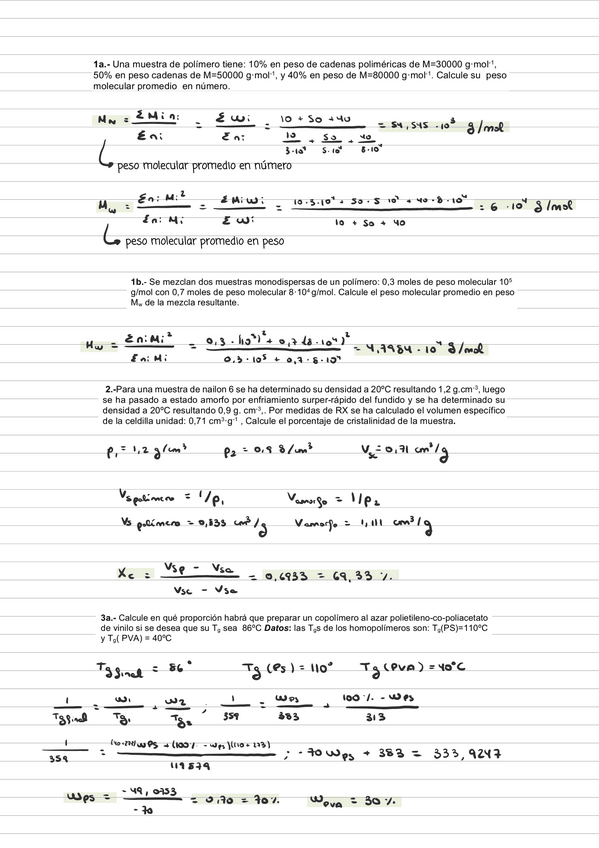 1a.- Una muestra de polímero tiene: 10% en peso de cadenas poliméricas de M=30000 g·mol⁻¹,
50% en peso cadenas de M=50000 g·mol⁻¹, y 40% en peso de M=80000 g·mol⁻¹. Calcule su peso
molecular promedio en número.
Mₙ = Σ Mi ni / Σ ni = Σ wi / Σ ni = (10 + 50 + 40) / (10/3·10⁴ + 50/5·10⁴ + 40/8·10⁴) = 54,545 · 10³ g/mol
peso molecular promedio en número
M_w = Σ ni Mi² / Σ ni Mi = Σ Mi wi / Σ wi = (10·3·10⁴ + 50·5·10⁴ + 40·8·10⁴) / (10 + 50 + 40) = 6 · 10⁴ g/mol
peso molecular promedio en peso
1b.- Se mezclan dos muestras monodispersas de un polímero: 0,3 moles de peso molecular 10⁵
g/mol con 0,7 moles de peso molecular 8·10⁴ g/mol. Calcule el peso molecular promedio en peso
M_w de la mezcla resultante.
M_w = Σ ni Mi² / Σ ni Mi = (0,3 · (10⁵)² + 0,7 (8·10⁴)²) / (0,3·10⁵ + 0,7·8·10⁴) = 4,7984 · 10⁴ g/mol
2.-Para una muestra de nailon 6 se ha determinado su densidad a 20ºC resultando 1,2 g.cm⁻³, luego
se ha pasado a estado amorfo por enfriamiento surper-rápido del fundido y se ha determinado su
densidad a 20ºC resultando 0,9 g. cm⁻³,. Por medidas de RX se ha calculado el volumen específico
de la celdilla unidad: 0,71 cm³·g⁻¹ , Calcule el porcentaje de cristalinidad de la muestra.
ρ₁ = 1,2 g/cm³ ρ₂ = 0,9 g/cm³ V_sc = 0,71 cm³/g
Vs polímero = 1/ρ₁ Vamorfo = 1/ρ₂
Vs polímero = 0,833 cm³/g Vamorfo = 1,111 cm³/g
Xc = (Vsp - Vsa) / (Vsc - Vsa) = 0,6933 = 69,33 %.
3a.- Calcule en qué proporción habrá que preparar un copolímero al azar polietileno-co-poliacetato
de vinilo si se desea que su T_g sea 86ºC Datos: las T_gs de los homopolímeros son: T_g(PS)=110ºC
y T_g( PVA) = 40ºC
Tg final = 86° Tg (PS) = 110° Tg (PVA) = 40°C
1/Tg final = w₁/Tg₁ + w₂/Tg₂ ; 1/359 = wPS/383 + (100 % - wPS)/313
1/359 = ((40+273) wPS + (100% - wPS)(110 + 273)) / 119879 ; -70 wPS + 383 = 333,9247
wPS = -49,0753 / -70 = 0,70 = 70% wPVA = 30 %